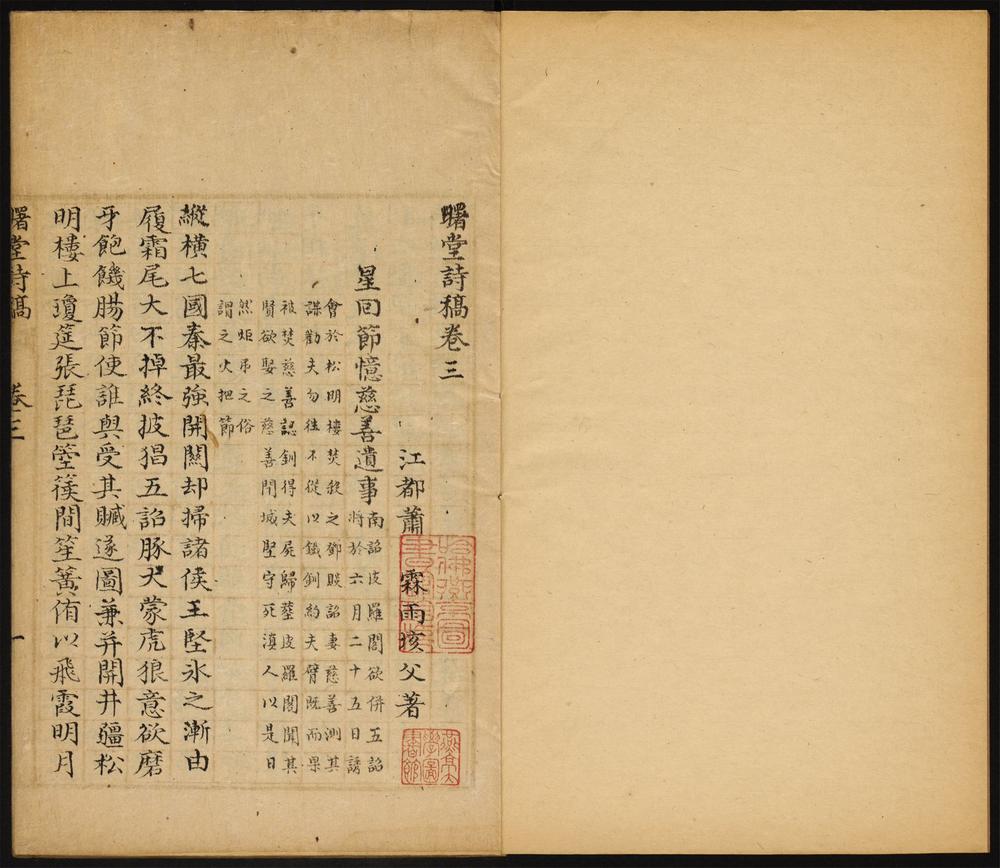 曙堂詩稿卷三
江都蕭霖雨垓父著
星回節憶慈善遺事
南詔皮羅閣欲併五詔
將於六月二十五日誘
會於松明樓焚殺之鄧賧詔妻慈善測其
謀勸夫勿往不從以鐵釧約夫臂既而果
被焚慈善認釧得夫屍歸葬皮羅閣聞其
賢欲娶之慈善閉城堅守死滇人以是日
然炬弔之俗
謂之火把節
縱橫七國秦最強開關却掃諸侯王堅氷之漸由
履霜尾大不掉終披猖五詔豚犬蒙虎狼意欲磨
牙飽饑腸節使誰與受其贓遂圖兼并開井疆松
明樓上瓊筵張琵琶箜篌間笙簧侑以飛霞明月
曙堂詩稿 卷三 一
燕京大學圖書館